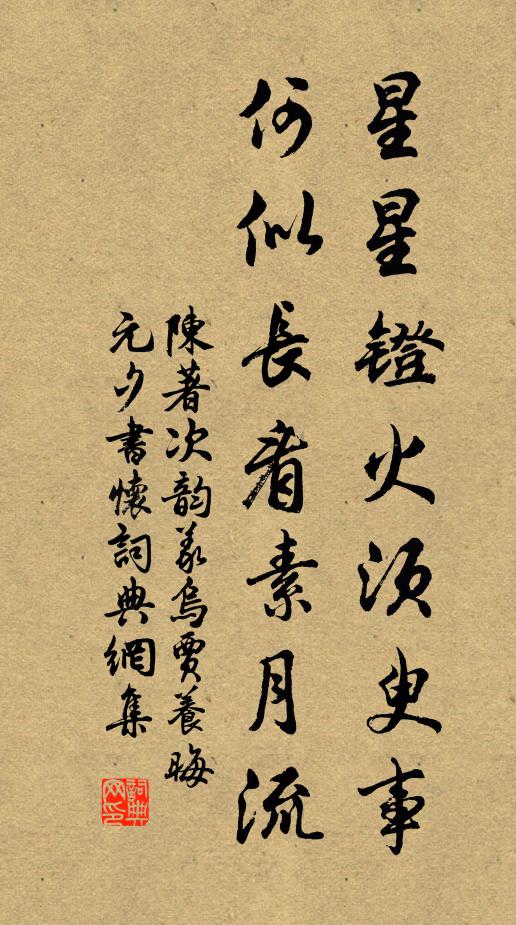 星星鐙火須臾事
何似長看素月流
陳著次韵義烏賈養晦
元夕書懷詞典網集
詞典网印